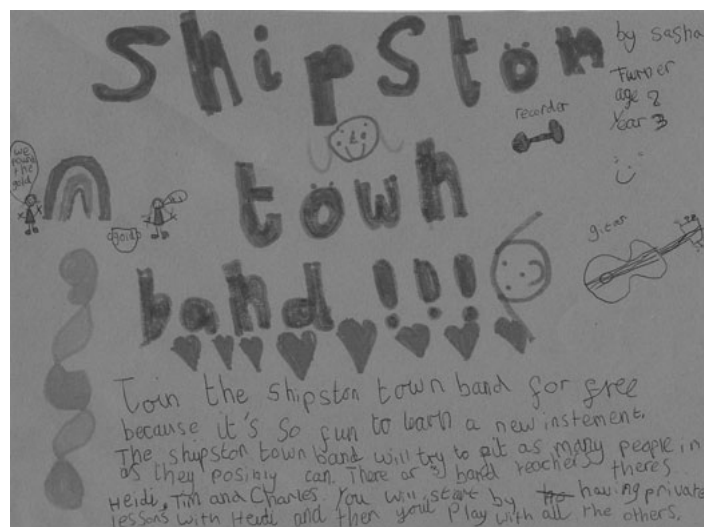 Shipston
by Sasha
Turner
age 8
Year 3
recorder
town
we
found
the
gold
gold
giear
band!!!
Join the shipston town band for free
because it's so fun to learn a new instement.
The shipston town band will try to fit as many people in
as they posibly can. There ar 3 band teachers theres
Heidi, Tim and Charles. You will start by having private
lessons with Heidi and then youl play with all the others.